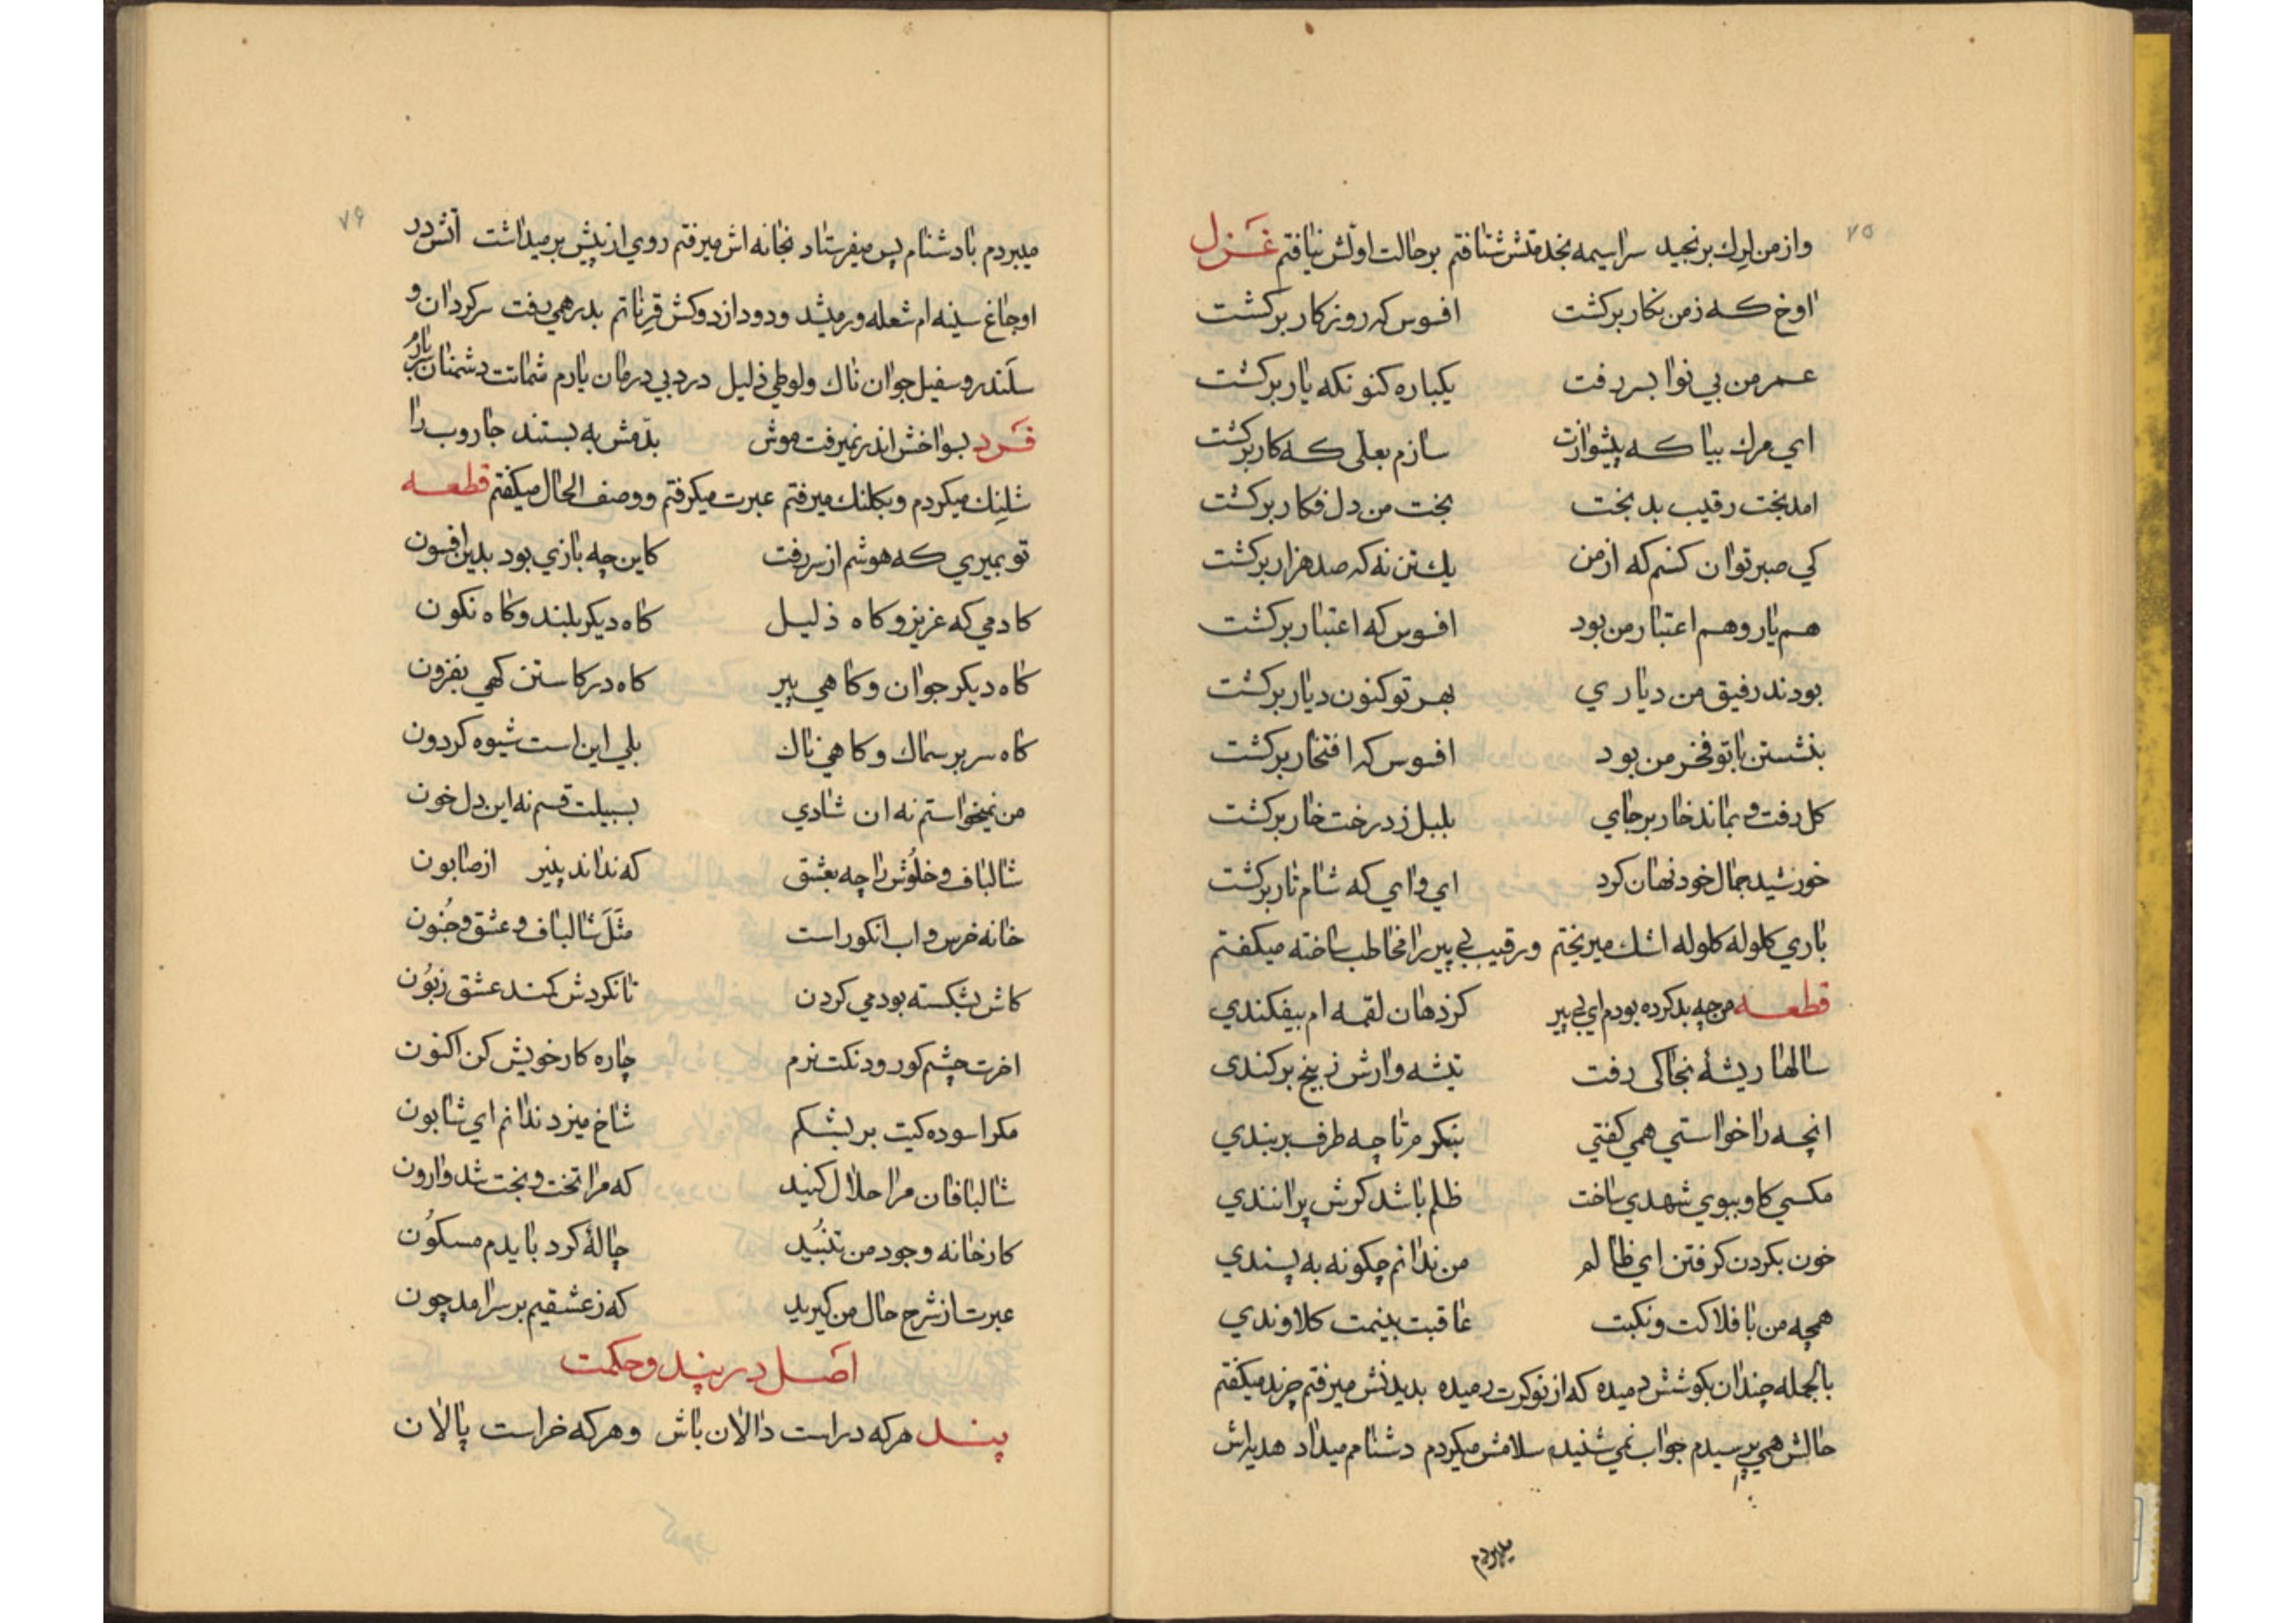 ۷۵
واز من لرك برنجید سراسیمه بخدمتش شتافتم برحالت اولش نیافتم غزل
اوخ که زمن نکار برکشت افسوس که روزکار برکشت
عمر من بی نوا بسر رفت یکباره کنونکه یار برکشت
ای مرك بیا که پیشوازت سازم بعلی که کار برکشت
امد بخت رقیب بد بخت بخت من دل فکار برکشت
کی صبر توان کنم که از من یك تن نه که صد هزار برکشت
هم یار و هم اعتبار من بود افسوس که اعتبار برکشت
بودند رفیق من دیاری بهر تو کنون دیار برکشت
بنشستن با تو فخر من بود افسوس که افتخار برکشت
کل رفت و بماند خار برجای بلبل ز درخت خار برکشت
خورشید جمال خود نهان کرد ای وای که شام تار برکشت
باری کلوله کلوله اشك میریختم و رقیب بی پیر را مخاطب ساخته میکفتم
قطعه من چه بد کرده بودم ای بی پیر کز دهان لقمه ام بیفکندی
سالها ریشهٔ بخاکی رفت تیشه وارش ز بیخ برکندی
انچه را خواستی همی کفتی بنکرم تا چه طرف بربندی
مکسی کاو ببوی شهدی ساخت ظلم باشد کرش پرانندی
خون بکردن کرفتن ای ظالم من ندانم چکونه به پسندی
همچه من با فلاکت و نکبت عاقبت بینمت کلاوندی
بالجمله چندان بکوشش دمیده که از نوکرت رمیده بدیدنش میرفتم چرند میکفتم
حالش همی پرسیدم جواب نمی شنیدم سلامش میکردم دشنام میداد هدیه اش
میبردم
۷۶
میبردم با دشنام پس میفرستاد بخانه اش میرفتم روی از پیش برمیداشت آتش در
اوجاغ سینه ام شعله ور میشد و دود از دوکش قرناتم بدر همی رفت سرکردان و
سلندر و سفیل جوان ناك و لوطی ذلیل درد بی درمان یارم شماتت دشمنان سربارم
فرد بسواخش اندر نمیرفت موش بدمش به بستند جاروب را
شلنك میکردم و بکلنك میرفتم عبرت میکرفتم و وصف الحال میکفتم قطعه
تو بمیری که هوشم از سر رفت کاین چه بازی بود بدین افسون
کادمی که عزیز و کاه ذلیل کاه دیکر بلند و کاه نکون
کاه دیکر جوان و کاهی پیر کاه در کاستن کهی بفزون
کاه سر بر سماك و کاهی ناك بلی این است شیوه کردون
من نمیخواستم نه ان شادی بسبیلت قسم نه این دل خون
شالباف و خلوش را چه بعشق که نداند پنیر از صابون
خانه خرس و اب انکور است مثل شالباف و عشق و جنون
کاش بشکسته بودمی کردن تا نکردش کمند عشق زبون
اخرت چشم کور و دنکت نرم چاره کار خویش کن اکنون
مکر اسوده کیت بر بشکم شاخ میزد ندانم ای شابون
شالبافان مرا حلال کنید که مرا تخت و بخت شد وارون
کارخانه وجود من تنبید چالهٔ کرد بایدم مسکون
عبرت از شرح حال من کیرید که ز عشقیم بر سر امد چون
اصل در پند و حکمت
پند هر که در است دالان باش و هر که خر است پالان